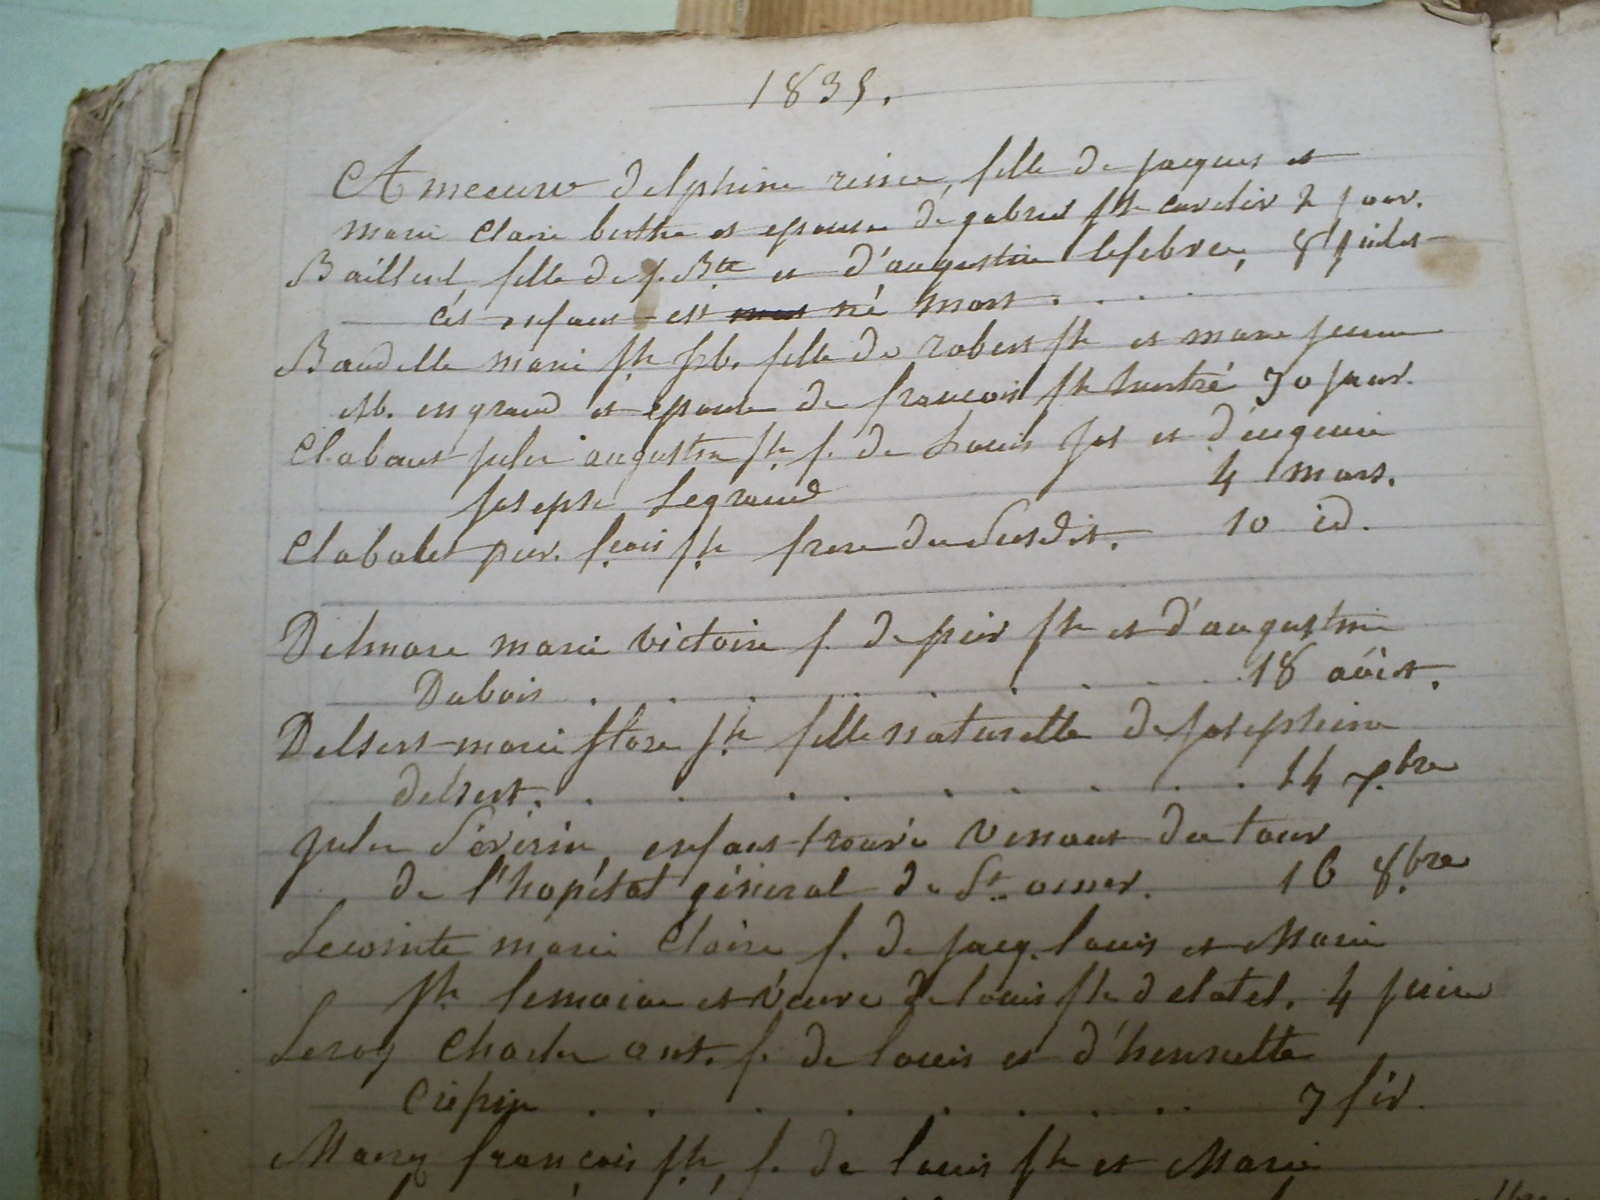 1835.
Ameeuw delphine reine, fille de jacques et
marie claire berthe et epouse de gabriel jh cordier 2 janv.
Bailleul, fille de j. Bte et d'augustine lefebvre, 8 juillet
cét enfant est né mort . . . .
Baudelle marie jh fille de robert jh et marie jeanne
ab. engrand et epouse de françois jh hustré 30 janv.
Clabaut jules augustin jh f. de Louis jos et d'éugenie
joseph Legrand 4 mars.
Clabaut pier. fçois jh frere du Susdit. 10 id.
Delmare marie victoire f. de pier jh et d'augustine
Dubois . . . . . . . . 18 aóùt.
Delsert marie flore jh fille naturelle de josephine
délsert. . . . . . . . . 14 7.bre
jules Séverin, enfant trouvé venant du tour
de l'hopital géneral de St. omer. 16 8.bre
Lecointe marie Claire f. de jacq. louis et Marie
jh lemoine et véuve de louis jh delatel. 4 juin
Leroy Charles ant. f. de louis et d'henriette
Crépin . . . . . . . . 7 fév.
Many françois jh, f. de louis jh et Marie